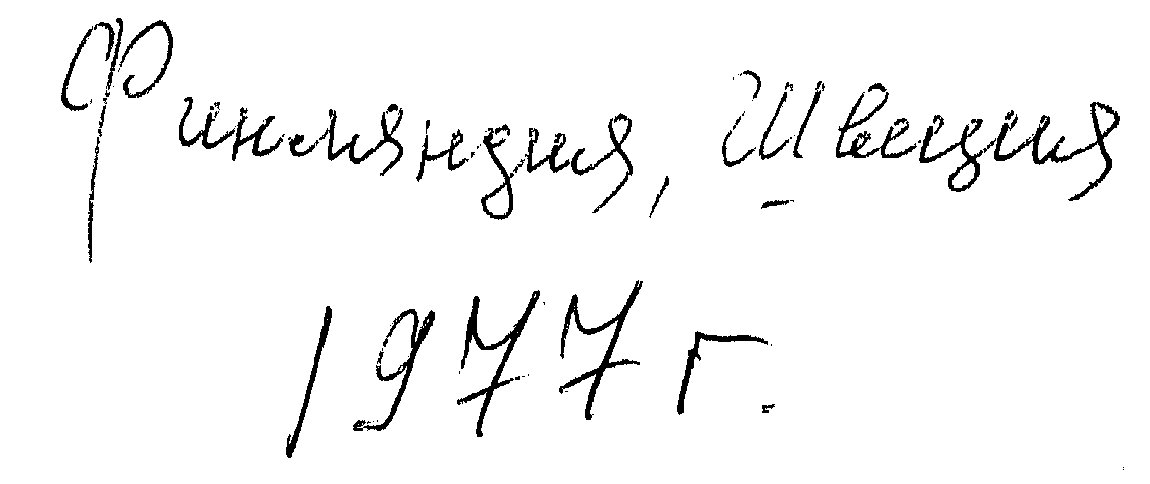 Финляндия, Швеция
1977 г.